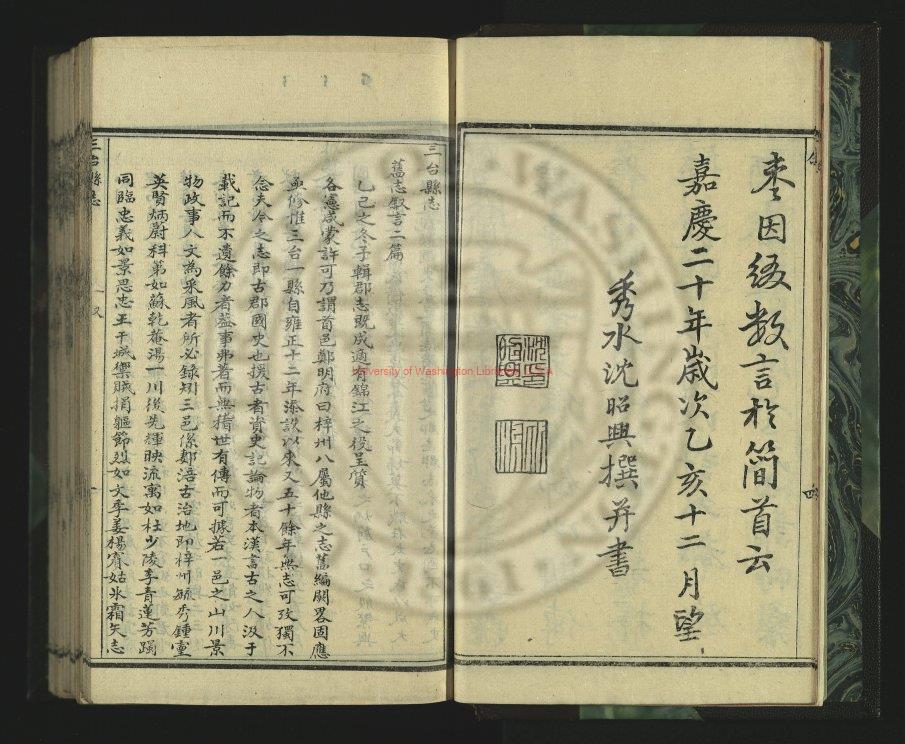 棗因綴數言於簡首云
嘉慶二十年歲次乙亥十二月望
秀水沈昭興撰并書
三台縣志
舊志叙言二篇
乙巳之冬予輯郡志既成適有錦江之役呈質
各憲咸蒙許可乃謂首邑鄭明府曰梓州八屬他縣之志舊編闕畧固應
亟修惟三台一縣自雍正十二年添設以來又五十餘年無志可攷獨不
念夫今之志即古郡國史也援古者資史記論物者本漢書古之人汲于
載記而不遺餘力者葢事弗著而無稽世有傳而可據若一邑之山川景
物政事人文為采風者所必錄矧三邑係鄭涪古治地即梓州毓秀鍾靈
英賢炳蔚科第如蘇乾菴湯一川後先輝映流寓如杜少陵李青蓮芳躅
同臨忠義如景思忠王干城禦賊捐軀節烈如文季姜楊賓姑氷霜矢志
三台縣志
叙
University of Washington Libraries, USA